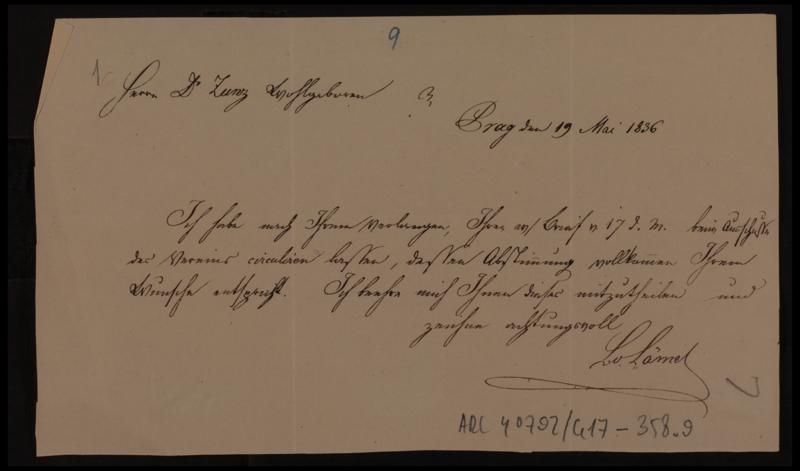 9
Herrn Dr Zunz Wohlgeboren
Prag den 19 Mai 1836
Ich habe nach Ihrem Verlangen, Ihren w/ Brief v 17 d. M. beim Ausschusse
des Vereins circuliren lassen, dessen Abstimmung vollkommen Ihrem
Wunsche entspricht. Ich beehre mich Ihnen dieses mitzutheilen und
zeichne achtungsvoll
Lämel
ARC 4 0792/G17-358.9